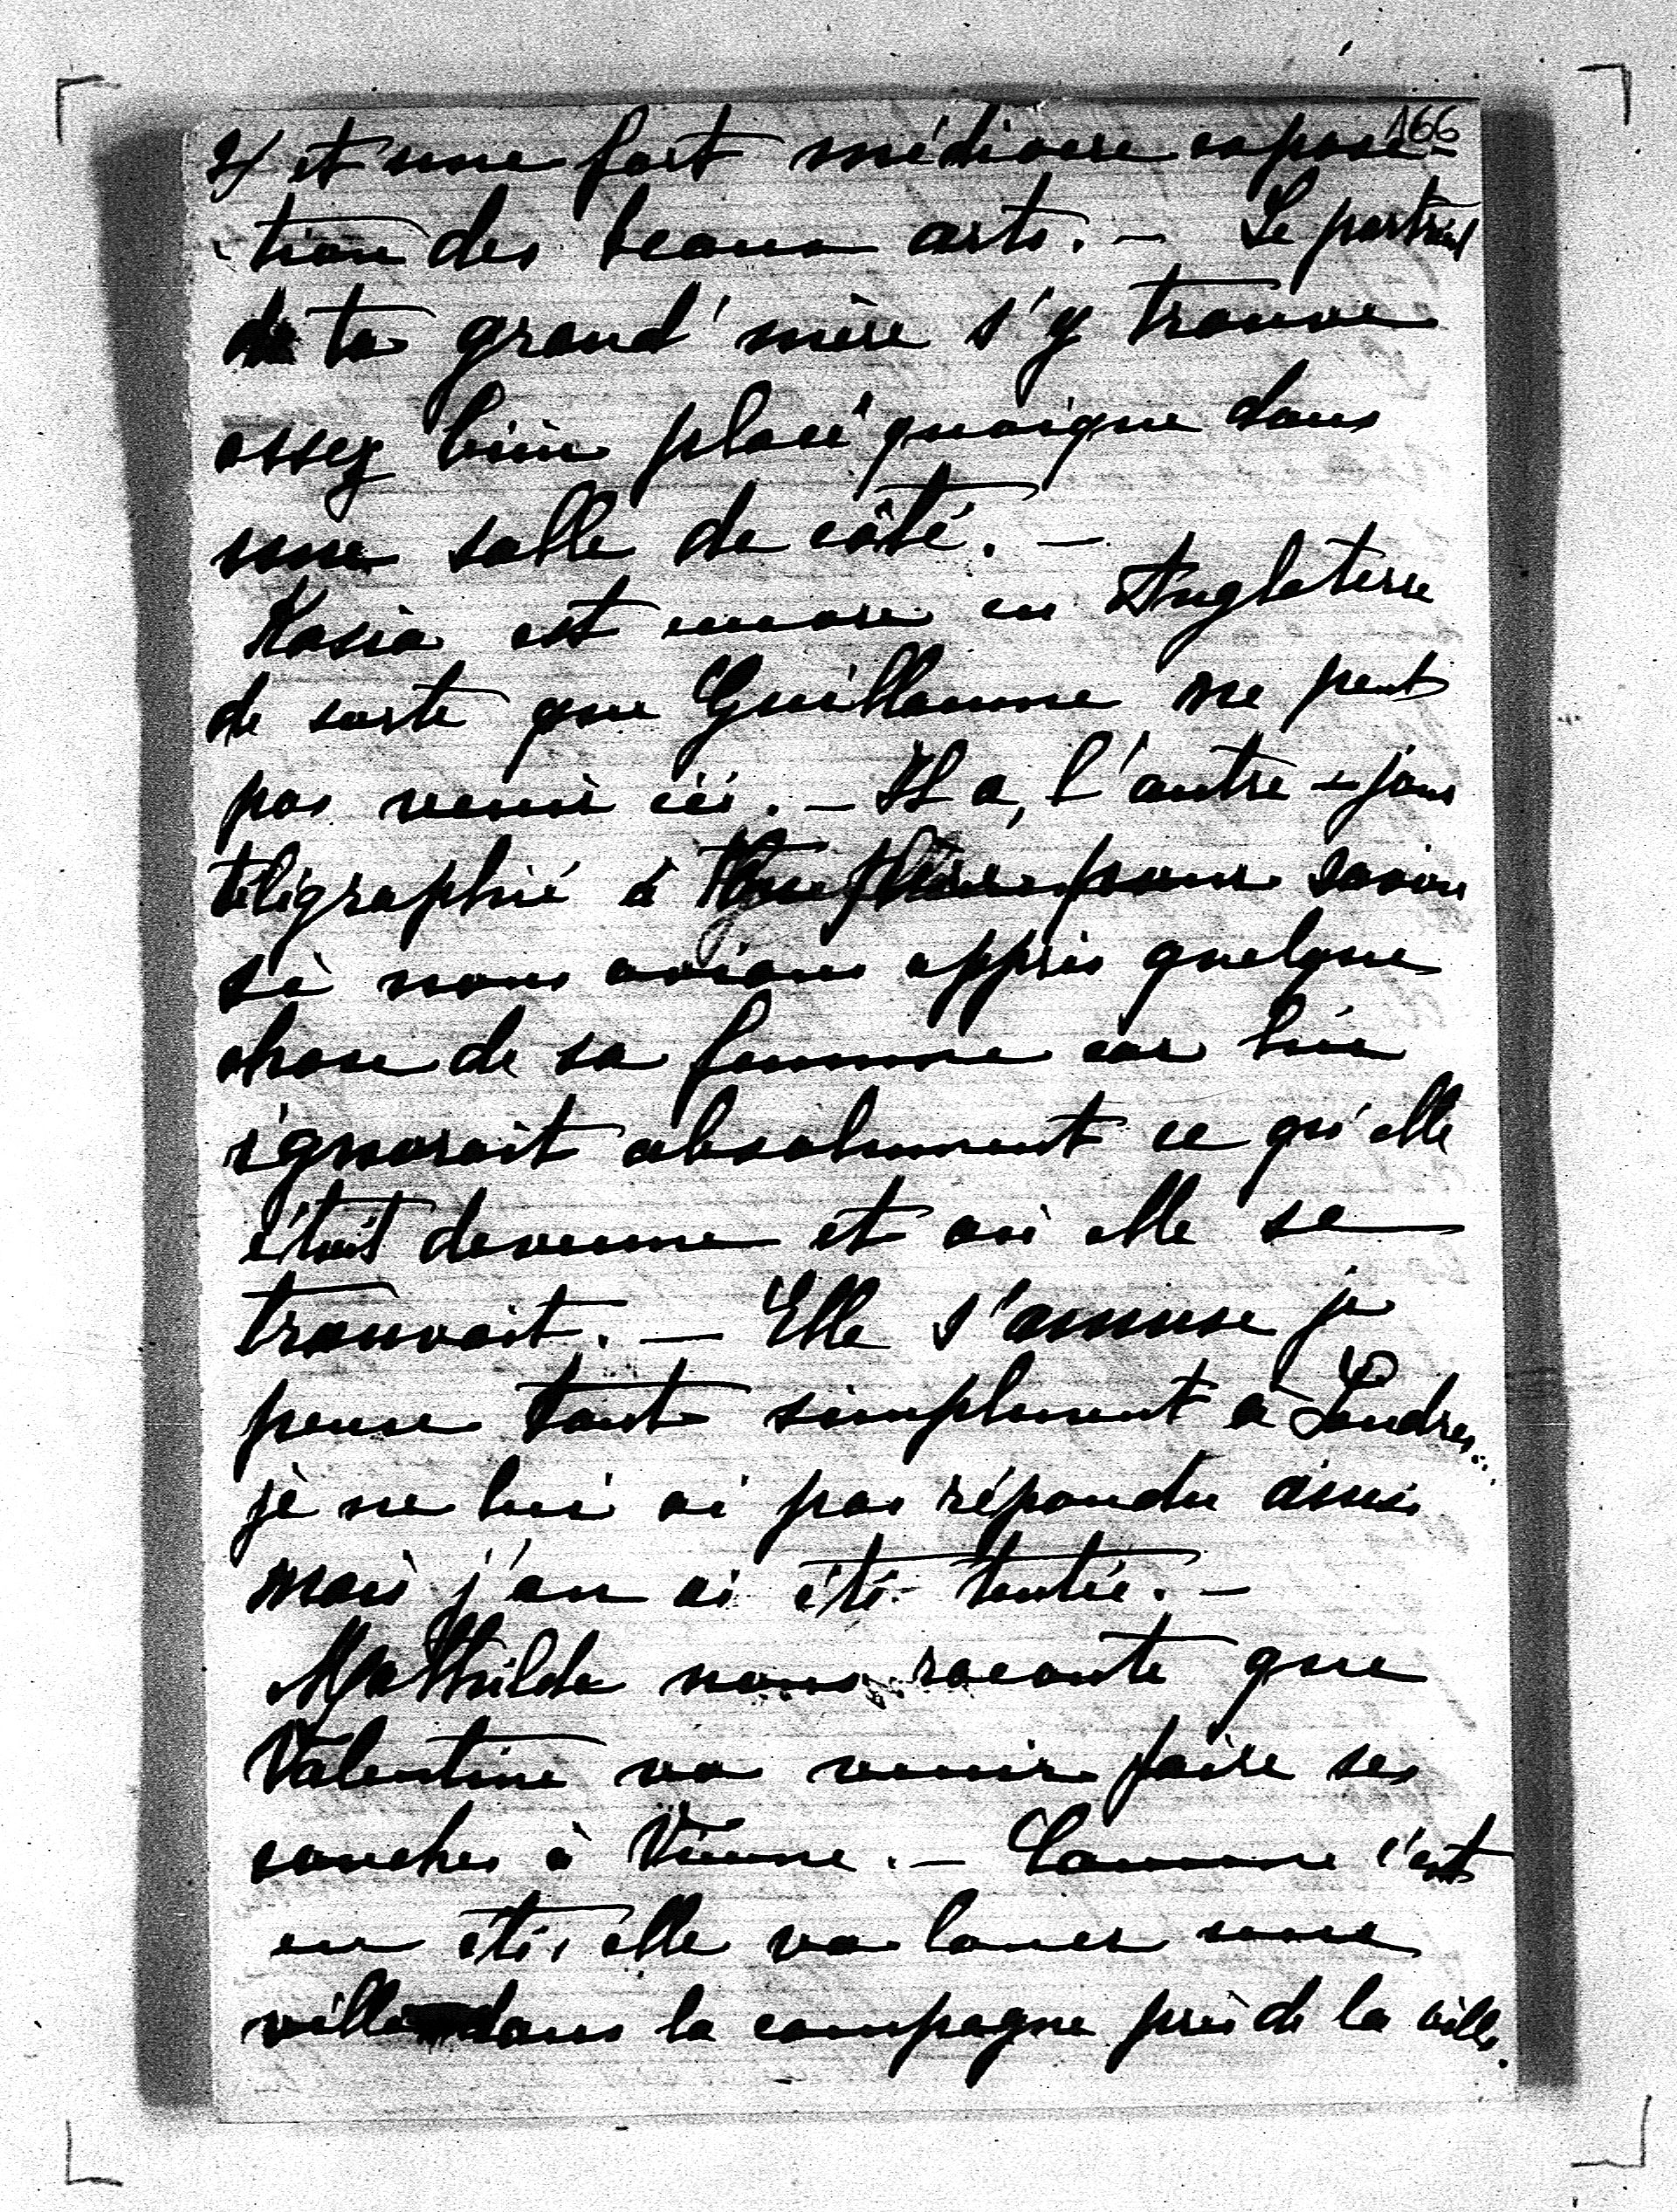 166
2/ et une fort médiocre exposi-
tion des beaux arts. — Le portrait
de ta grand'mère s'y trouve
assez bien placé quoique dans
une salle de côté. —
Kasia est encore en Angleterre
de sorte que Guillaume ne peut
pas venir ici. — Il a, l'autre jour
télégraphié à ton père pour savoir
si nous avions appris quelque
chose de sa femme car lui
ignorait absolument ce qu'elle
était devenue et où elle se
trouvait. — Elle s'amuse je
pense tout simplement à Londres...
je ne lui ai pas répondu ainsi
mais j'en ai été tentée. —
Mathilde nous raconte que
Valentine va venir faire ses
couches à Vienne. — Comme c'est
en été, elle va louer une
villa dans la campagne près de la ville.